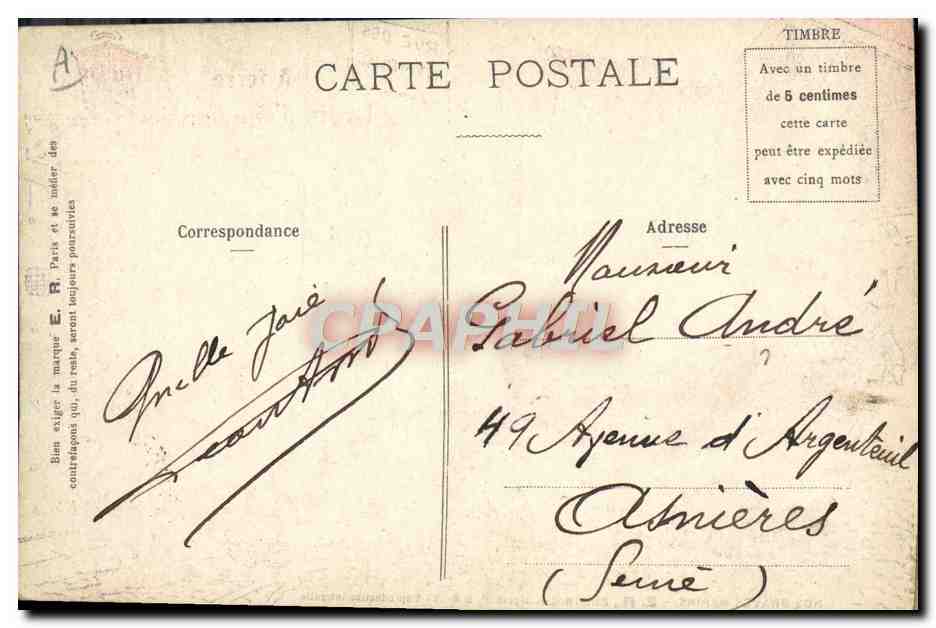 A
TIMBRE
CARTE POSTALE
Avec un timbre
de 5 centimes
cette carte
peut être expédiée
avec cinq mots
Bien exiger la marque E. R. Paris et se méfier des
contrefaçons qui, du reste, seront toujours poursuivies
Correspondance
Quelle joie !
Adresse
Monsieur
Gabriel André
49 Avenue d'Argenteuil
Asnières
(Seine)
CPAPHIL